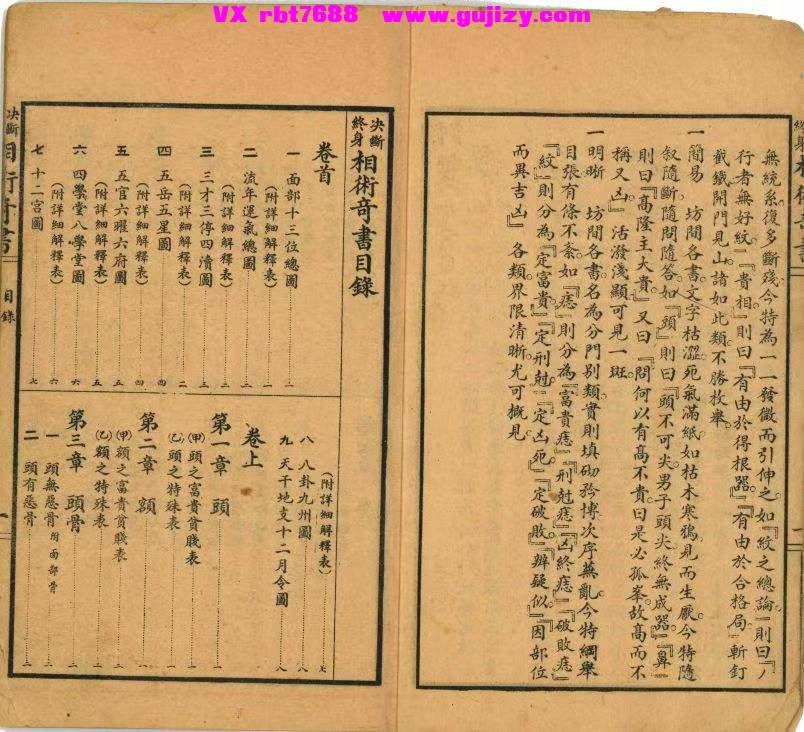 VX rbt7688 www.gujizy.com
無統系復多斷殘。今特為一一發微而引伸之。如『紋之總論』則曰『ノ
行者無好紋』『貴相』則曰『有由於得根器』『有由於合格局』斬釘
截鐵開門見山。諸如此類。不勝枚舉。
一簡易 坊間各書。文字枯澀。死氣滿紙。如枯木寒鴉。見而生厭。今特隨
叙隨斷。隨問隨答。如『頭』則曰『頭不可尖。男子頭尖終無成器』『鼻』
則曰『高隆主大貴』又曰『問何以有高不貴。曰是必孤峯。故高而不
稱又凶』活潑淺顯。可見一斑
一明晰 坊間各書。名為分門別類。實則填砌矜博。次序蕪亂。今特綱舉
目張。有條不紊。如『痣』則分為『富貴痣』『刑尅痣』『凶終痣』『破敗痣』
『紋』則分為『定富貴』『定刑尅』『定凶死』『定破敗』『辨疑似』『因部位
而異吉凶』各類。界限清晰。尤可概見。
決斷終身相術奇書目錄
卷首
一 面部十三位總圖 一
(附詳細解釋表) 一
二 流年運氣總圖 二
(附詳細解釋表) 二
三 三才三停四瀆圖 三
(附詳細解釋表) 三
四 五岳五星圖 四
(附詳細解釋表) 四
五 五官六曜六府圖 五
(附詳細解釋表) 五
六 四學堂八學堂圖 六
(附詳細解釋表) 六
七 十二宮圖 七
(附詳細解釋表) 七
八 八卦九州圖 八
九 天干地支十二月令圖 八
卷上
第一章 頭 一
(甲)頭之富貴貧賤表 一
(乙)頭之特殊表 一
第二章 額 一
(甲)額之富貴貧賤表 二
(乙)額之特殊表 二
第三章 頭骨 二
一 頭無惡骨附面部骨 二
二 頭有惡骨 三
決斷 相術奇書 目錄 一